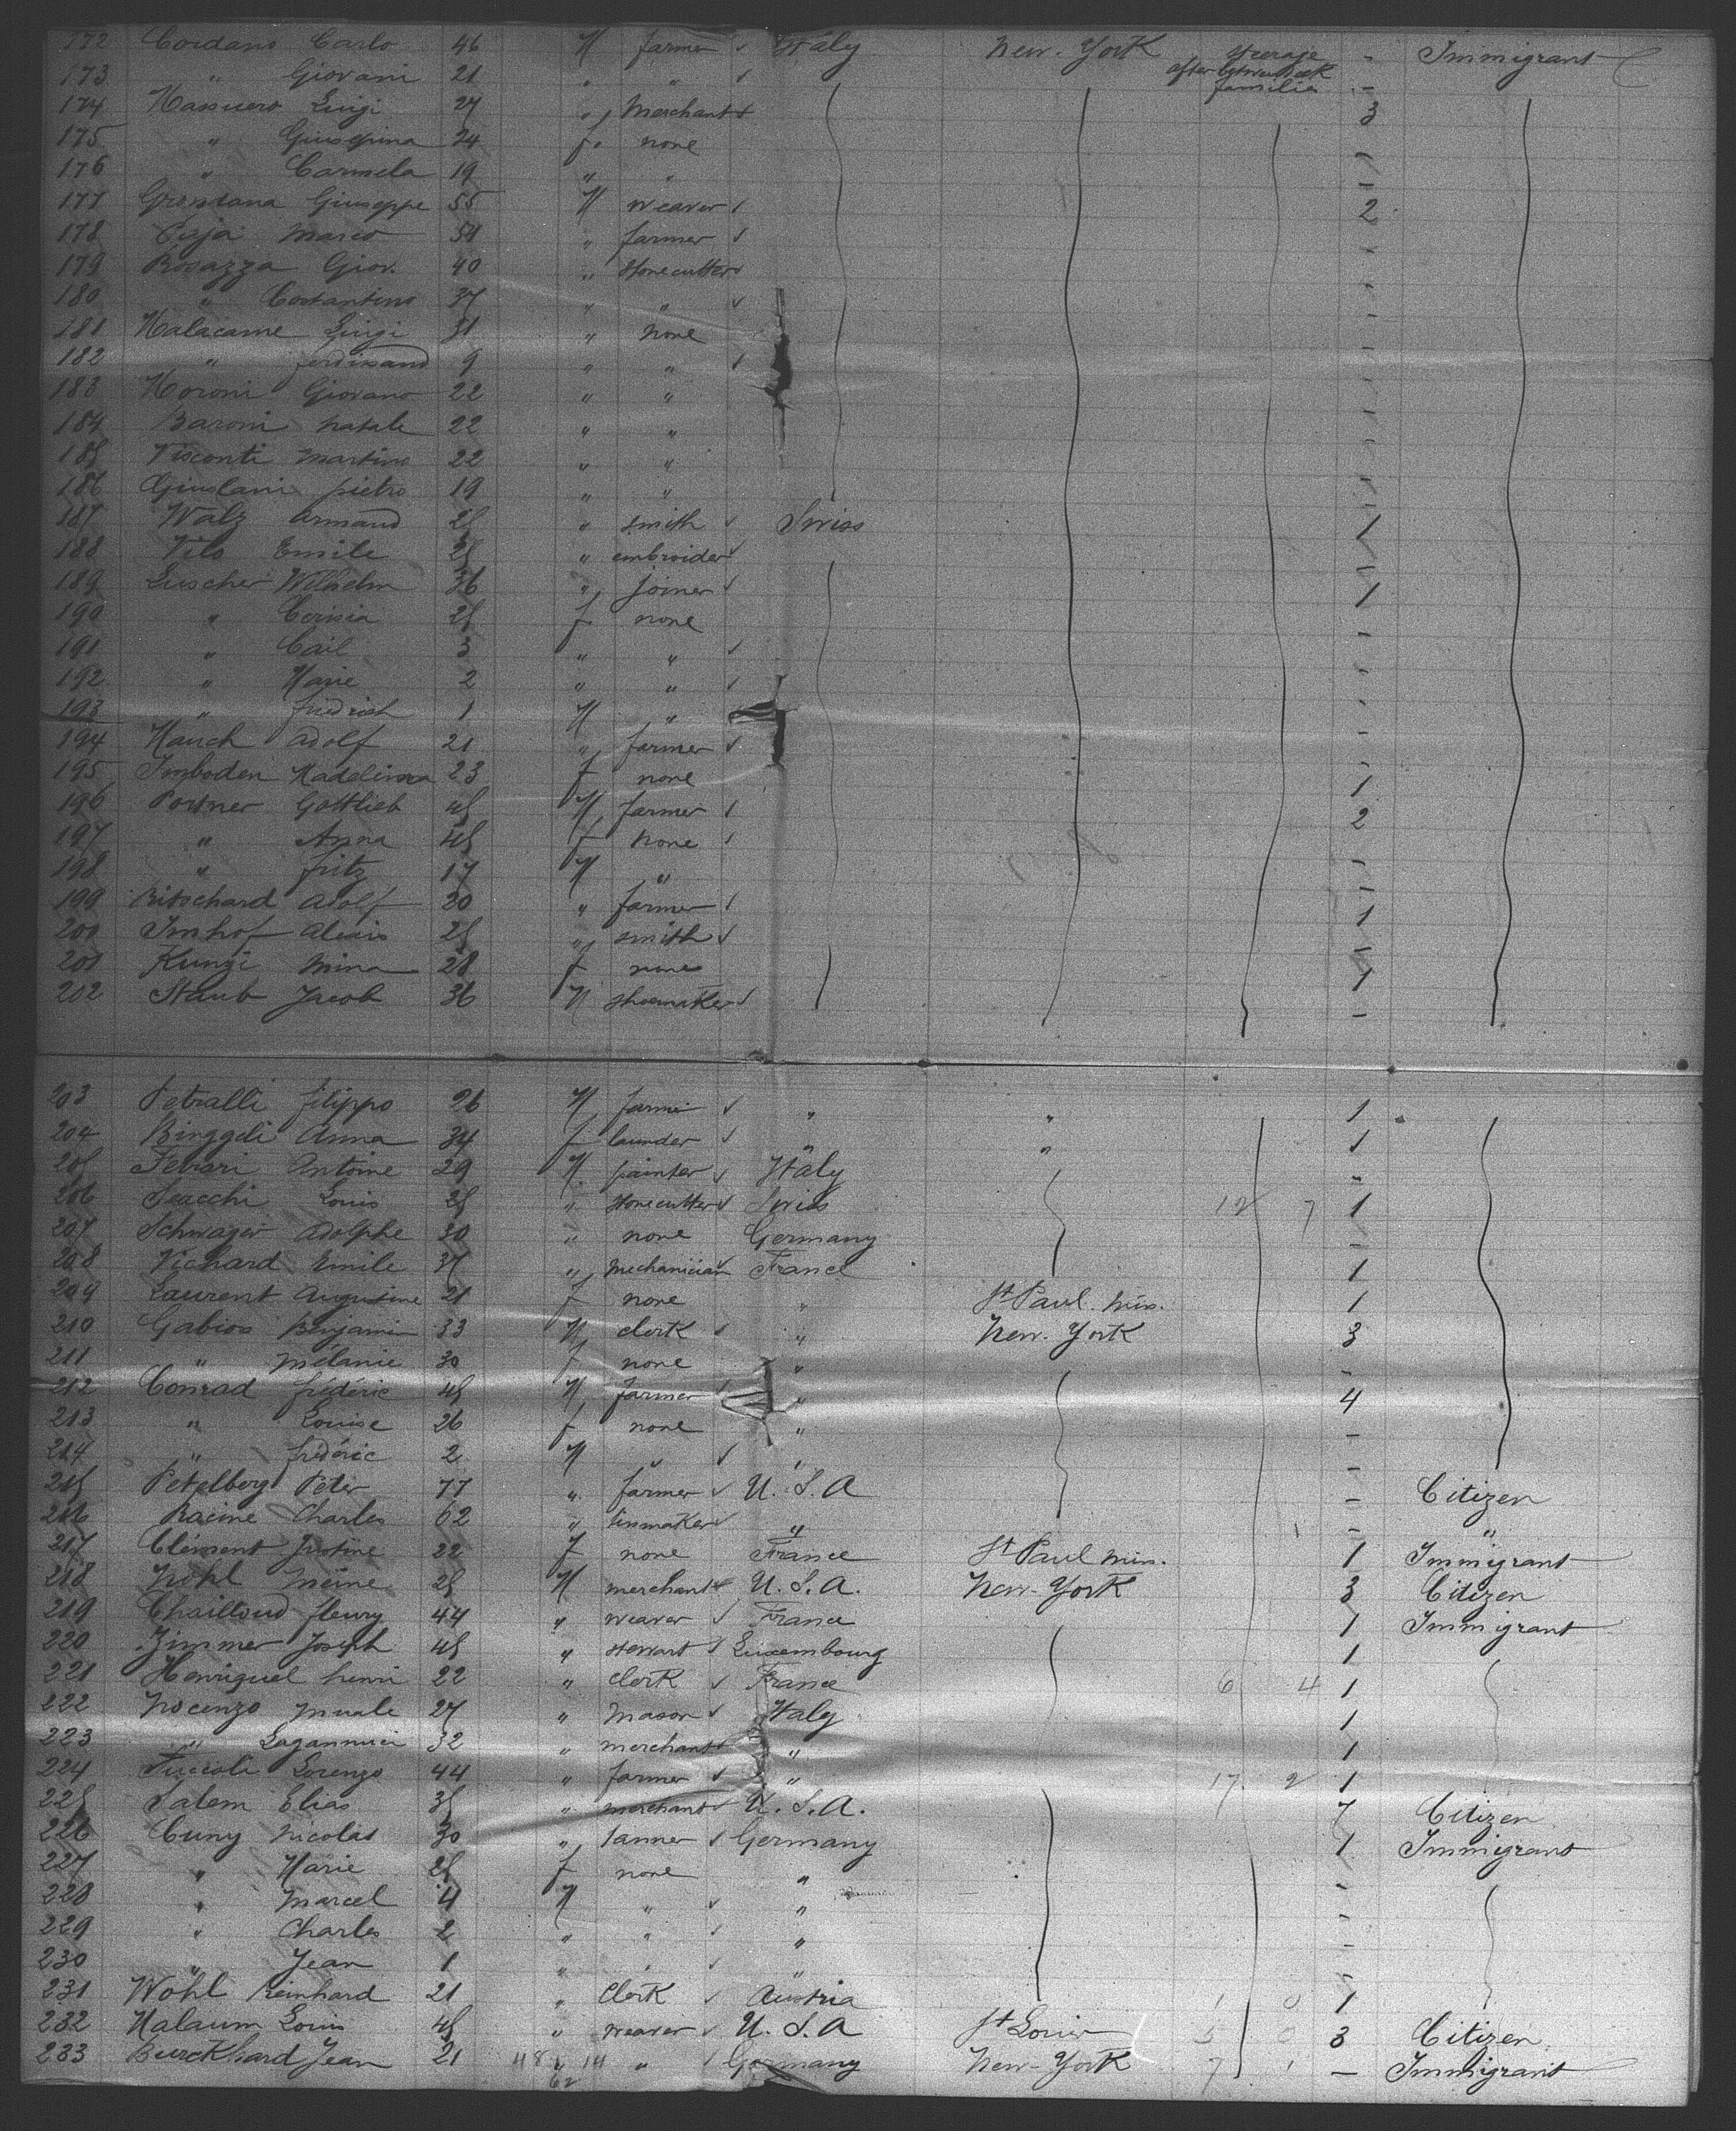 172 Cordano Carlo 46 M farmer ✓ Italy New-York Steerage - Immigrant
173 " Giovani 21 " " ✓ after between deck -
174 Massuero Luigi 27 " Merchant ✓ families 3
175 " Giusepina 24 f. none -
176 " Carmela 19 " " -
177 Giuseppe 55 M weaver 2
178 Marco 54 " farmer ✓ -
179 Rosazza Giov. 40 " Stonecutter -
180 " Costantino 37 " " ✓ -
181 Malacarne Luigi 31 " none -
182 " ferdinand 9 " " -
183 Moroni Giovano 22 " " -
184 Baroni natale 22 " " -
185 Visconti Martino 22 " " -
186 Giuslani pietro 19 " " -
187 Walz Armand 25 " smith ✓ Swiss 1
188 Emile 25 " embroider -
189 Luscher Wilhelm 36 " joiner ✓ 1
190 " 25 f none -
191 " 3 " " ✓ -
192 " Marie 2 " " -
193 " fridrich 1 M " -
194 Mauch Adolf 21 " farmer ✓ -
195 Imboden Madelima 23 f none 1
196 Portner Gottlieb 45 M farmer 2
197 " Anna 45 f none -
198 " fritz 17 M " -
199 Ritschard Adolf 30 " farmer 1
200 Imhof Alexis 25 " smith ✓ -
201 Kunzi Mina 28 f none 1
202 Staub Jacob 36 M shoemaker ✓ -
203 Petralli filippo 26 M farmer ✓ " " 1
204 Binggeli Anna 34 f launder ✓ " " 1
205 Ferrari Antoine 29 M painter ✓ Italy "
206 Scacchi Louis 25 " Stonecutter ✓ Swiss 12 7 1
207 Schwager Adolphe 30 " none Germany -
208 Vichard Emile 37 " mechanician France 1
209 Laurent Augustine 21 f none " St Paul. Min. 1
210 Gabios Benjamin 33 M clerk ✓ " New-York 3
211 " Mélanie 30 f none " -
212 Conrad frédéric 45 M farmer " 4
213 " Louise 26 f none " -
214 " frédéric 2 M " ✓ " -
215 Petelberg Péter 77 " farmer ✓ U. S. A - Citizen
216 Racine Charles 62 " ✓ " - "
217 Clément Justine 22 f none France St Paul Min. 1 Immigrant
218 25 M merchant U. S. A. New-York 3 Citizen
219 Chailloud fleury 44 " weaver ✓ France 1 Immigrant
220 Zimmer Joseph 45 " stewart ✓ Luxembourg 1
221 Henriguel henri 22 " clerk ✓ France 6 4 1
222 Nocenzo 27 " Mason ✓ Italy 1
223 " 32 " merchant " 1
224 Lorenzo 44 " farmer ✓ " 17 2 1
225 Salem Elias 35 " merchant ✓ U. S. A. 7 Citizen
226 Cuny Nicolas 30 " tanner ✓ Germany 1 Immigrant
227 " Marie 25 f none " -
228 " Marcel 4 M " ✓ " -
229 " Charles 2 " " ✓ " -
230 " Jean 1 " " ✓ " -
231 Wohl reinhard 21 " Clerk ✓ Austria 1 0 1
232 Malaum Louis 45 " weaver ✓ U. S. A St Louis 5 0 3 Citizen
233 Burckhard Jean 21 48 " 14 " Germany New-York 7 1 - Immigrant
62